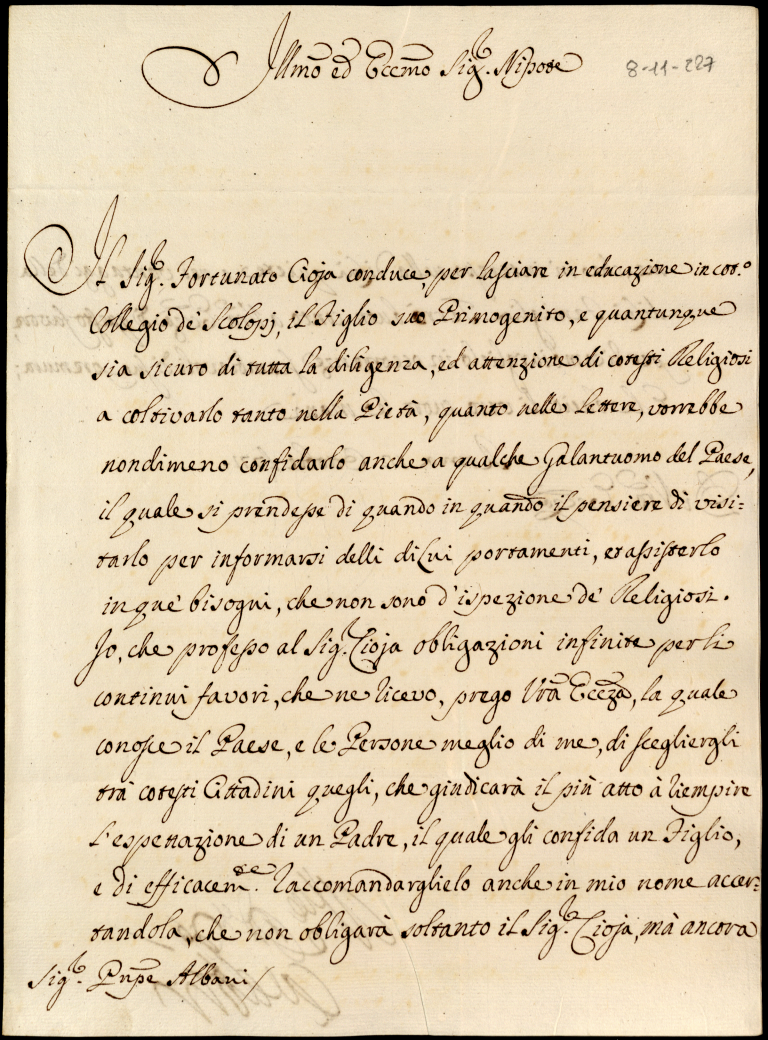 Illmo ed Eccmo Sigr. Nipote
8-11-227
Il Sigr. Fortunato Cioja conduce, per lasciare in educazione in cot.o
Collegio de' Scolopj, il Figlio suo Primogenito, e quantunque
sia sicuro di tutta la diligenza, ed attenzione di cotesti Religiosi
a coltivarlo tanto nella Pietà, quanto nelle Lettere, vorrebbe
nondimeno confidarlo anche a qualche Galantuomo del Paese,
il quale si prendesse di quando in quando il pensiere di visi=
tarlo per informarsi delli di Lui portamenti, et assisterlo
in que' bisogni, che non sono d'ispezione de' Religiosi.
Io, che professo al Sigr. Cioja obligazioni infinite per li
continui favori, che ne ricevo, prego Vra Eccza, la quale
conosce il Paese, e le Persone meglio di me, di sciegliergli
trà cotesti Cittadini quegli, che giudicarà il più atto à riempire
l'espettazione di un Padre, il quale gli confida un Figlio,
e di efficacem.te raccomandarglielo anche in mio nome accer=
tandola, che non obligarà soltanto il Sigr. Cioja, mà ancora
Sigr. Pnpe Albani/